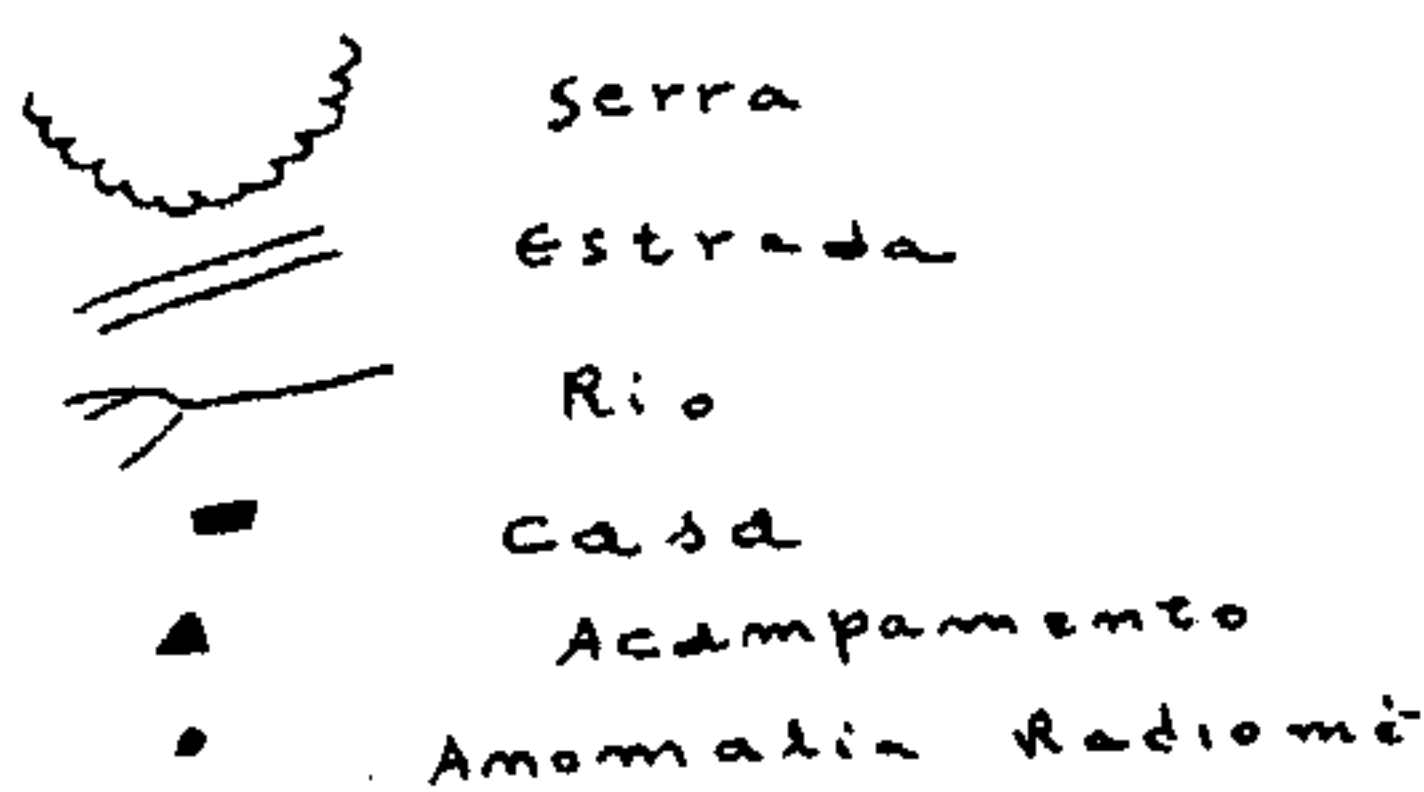 Serra
Estrada
Rio
Casa
Acampamento
Anomalia Radiomé-